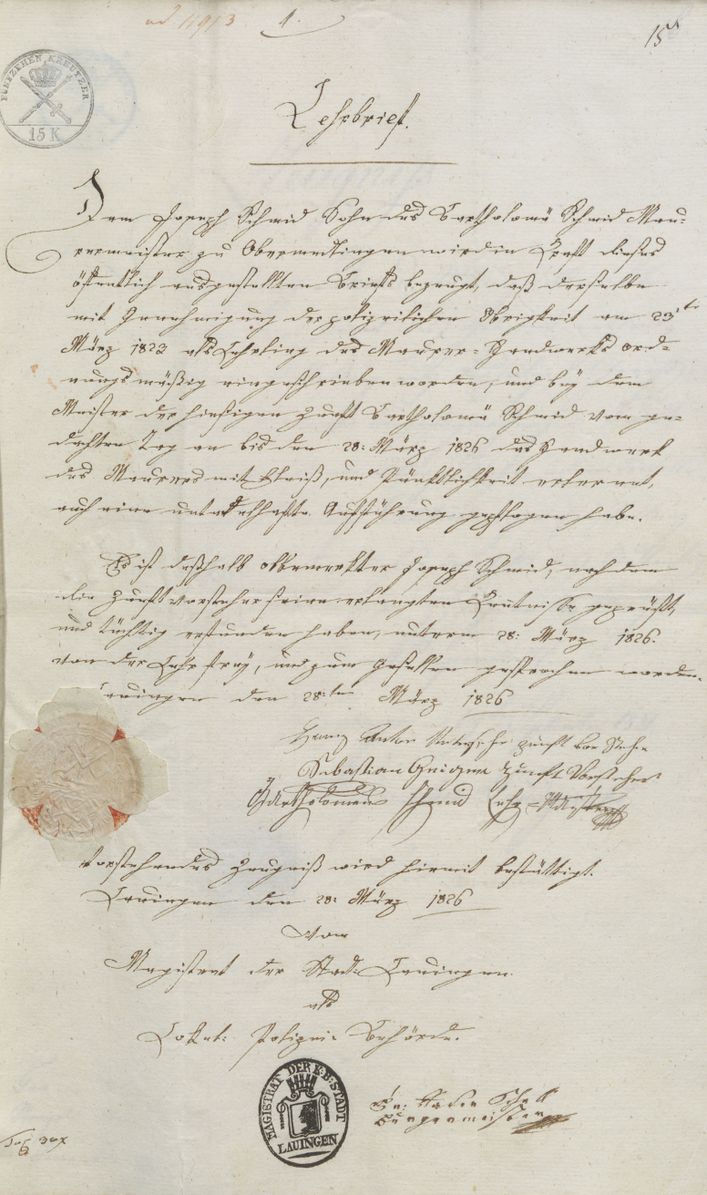 1.
15
FUNFZEHEN KREUTZER
15 K
Lehrbrief.
Dem Joseph Schmid Sohn des Bartholomä Schmid Mau-
rermeister zu Obermedlingen wird in Kraft dieses
öffentlich ausgestellten Briefs bezeugt, daß derselbe
mit Genehmigung der polizeilichen Obrigkeit am 23ten
März 1823 als Lehrling des Maurer-Handwerks ord-
nungsmäßig eingeschrieben worden, und bey dem
Meister der hiesigen Zunft Bartholomä Schmid vom ge-
dachten Tag an bis den 28: März 1826 das Handwerk
des Maurers mit Fleiß, und Pünktlichkeit erlernt,
auch eine untadelhafte Aufführung gepflogen habe.
Es ist deßhalb obbemerkter Joseph Schmid, nachdem
die Zunftvorsteher seine erlangten Kentnisse geprüft,
und tüchtig erfunden haben, unterm 28: März 1826.
von der Lehr frey, und zum Gesellen gesprochen worden.
Lauingen den 28ten März 1826
Franz Anton Zunft vor Steher
Sebastian Zunft Vorsteher
Bartholomeus Schmid Lehr-Meister
Vorstehendes Zeugniß wird hiermit bestättigt.
Lauingen den 28: März 1826
Vom
Magistrat der Stadt Lauingen.
als
Lokal: Polizei: Behörde.
MAGISTRAT DER K.B. STADT
LAUINGEN
Bürgermeister